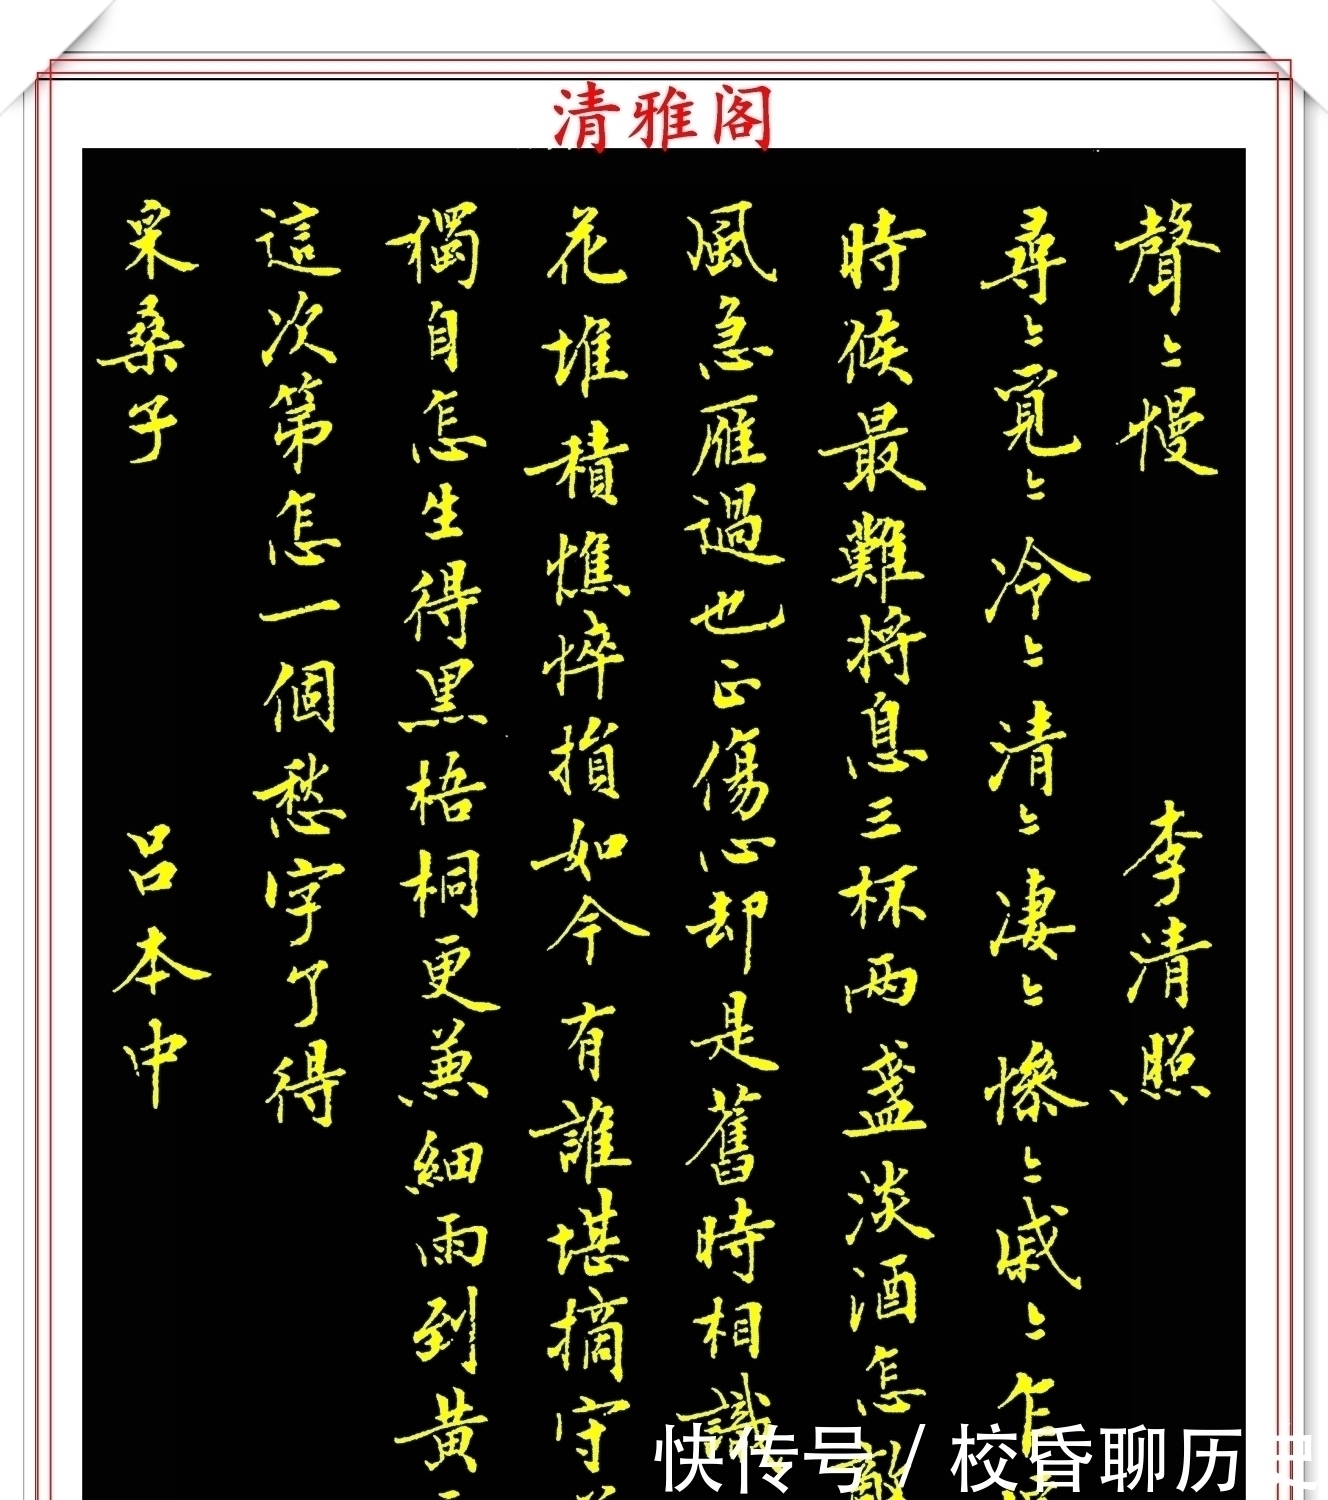 清雅阁
聲〻慢 李清照
尋〻覓〻冷〻清〻凄〻慘〻戚〻乍
時候最難將息三杯兩盞淡酒怎敵
風急雁過也正傷心却是舊時相識
花堆積憔悴損如今有誰堪摘守
獨自怎生得黑梧桐更兼細雨到黄
這次第怎一個愁字了得
采桑子 吕本中
快传号 / 校昏聊历史